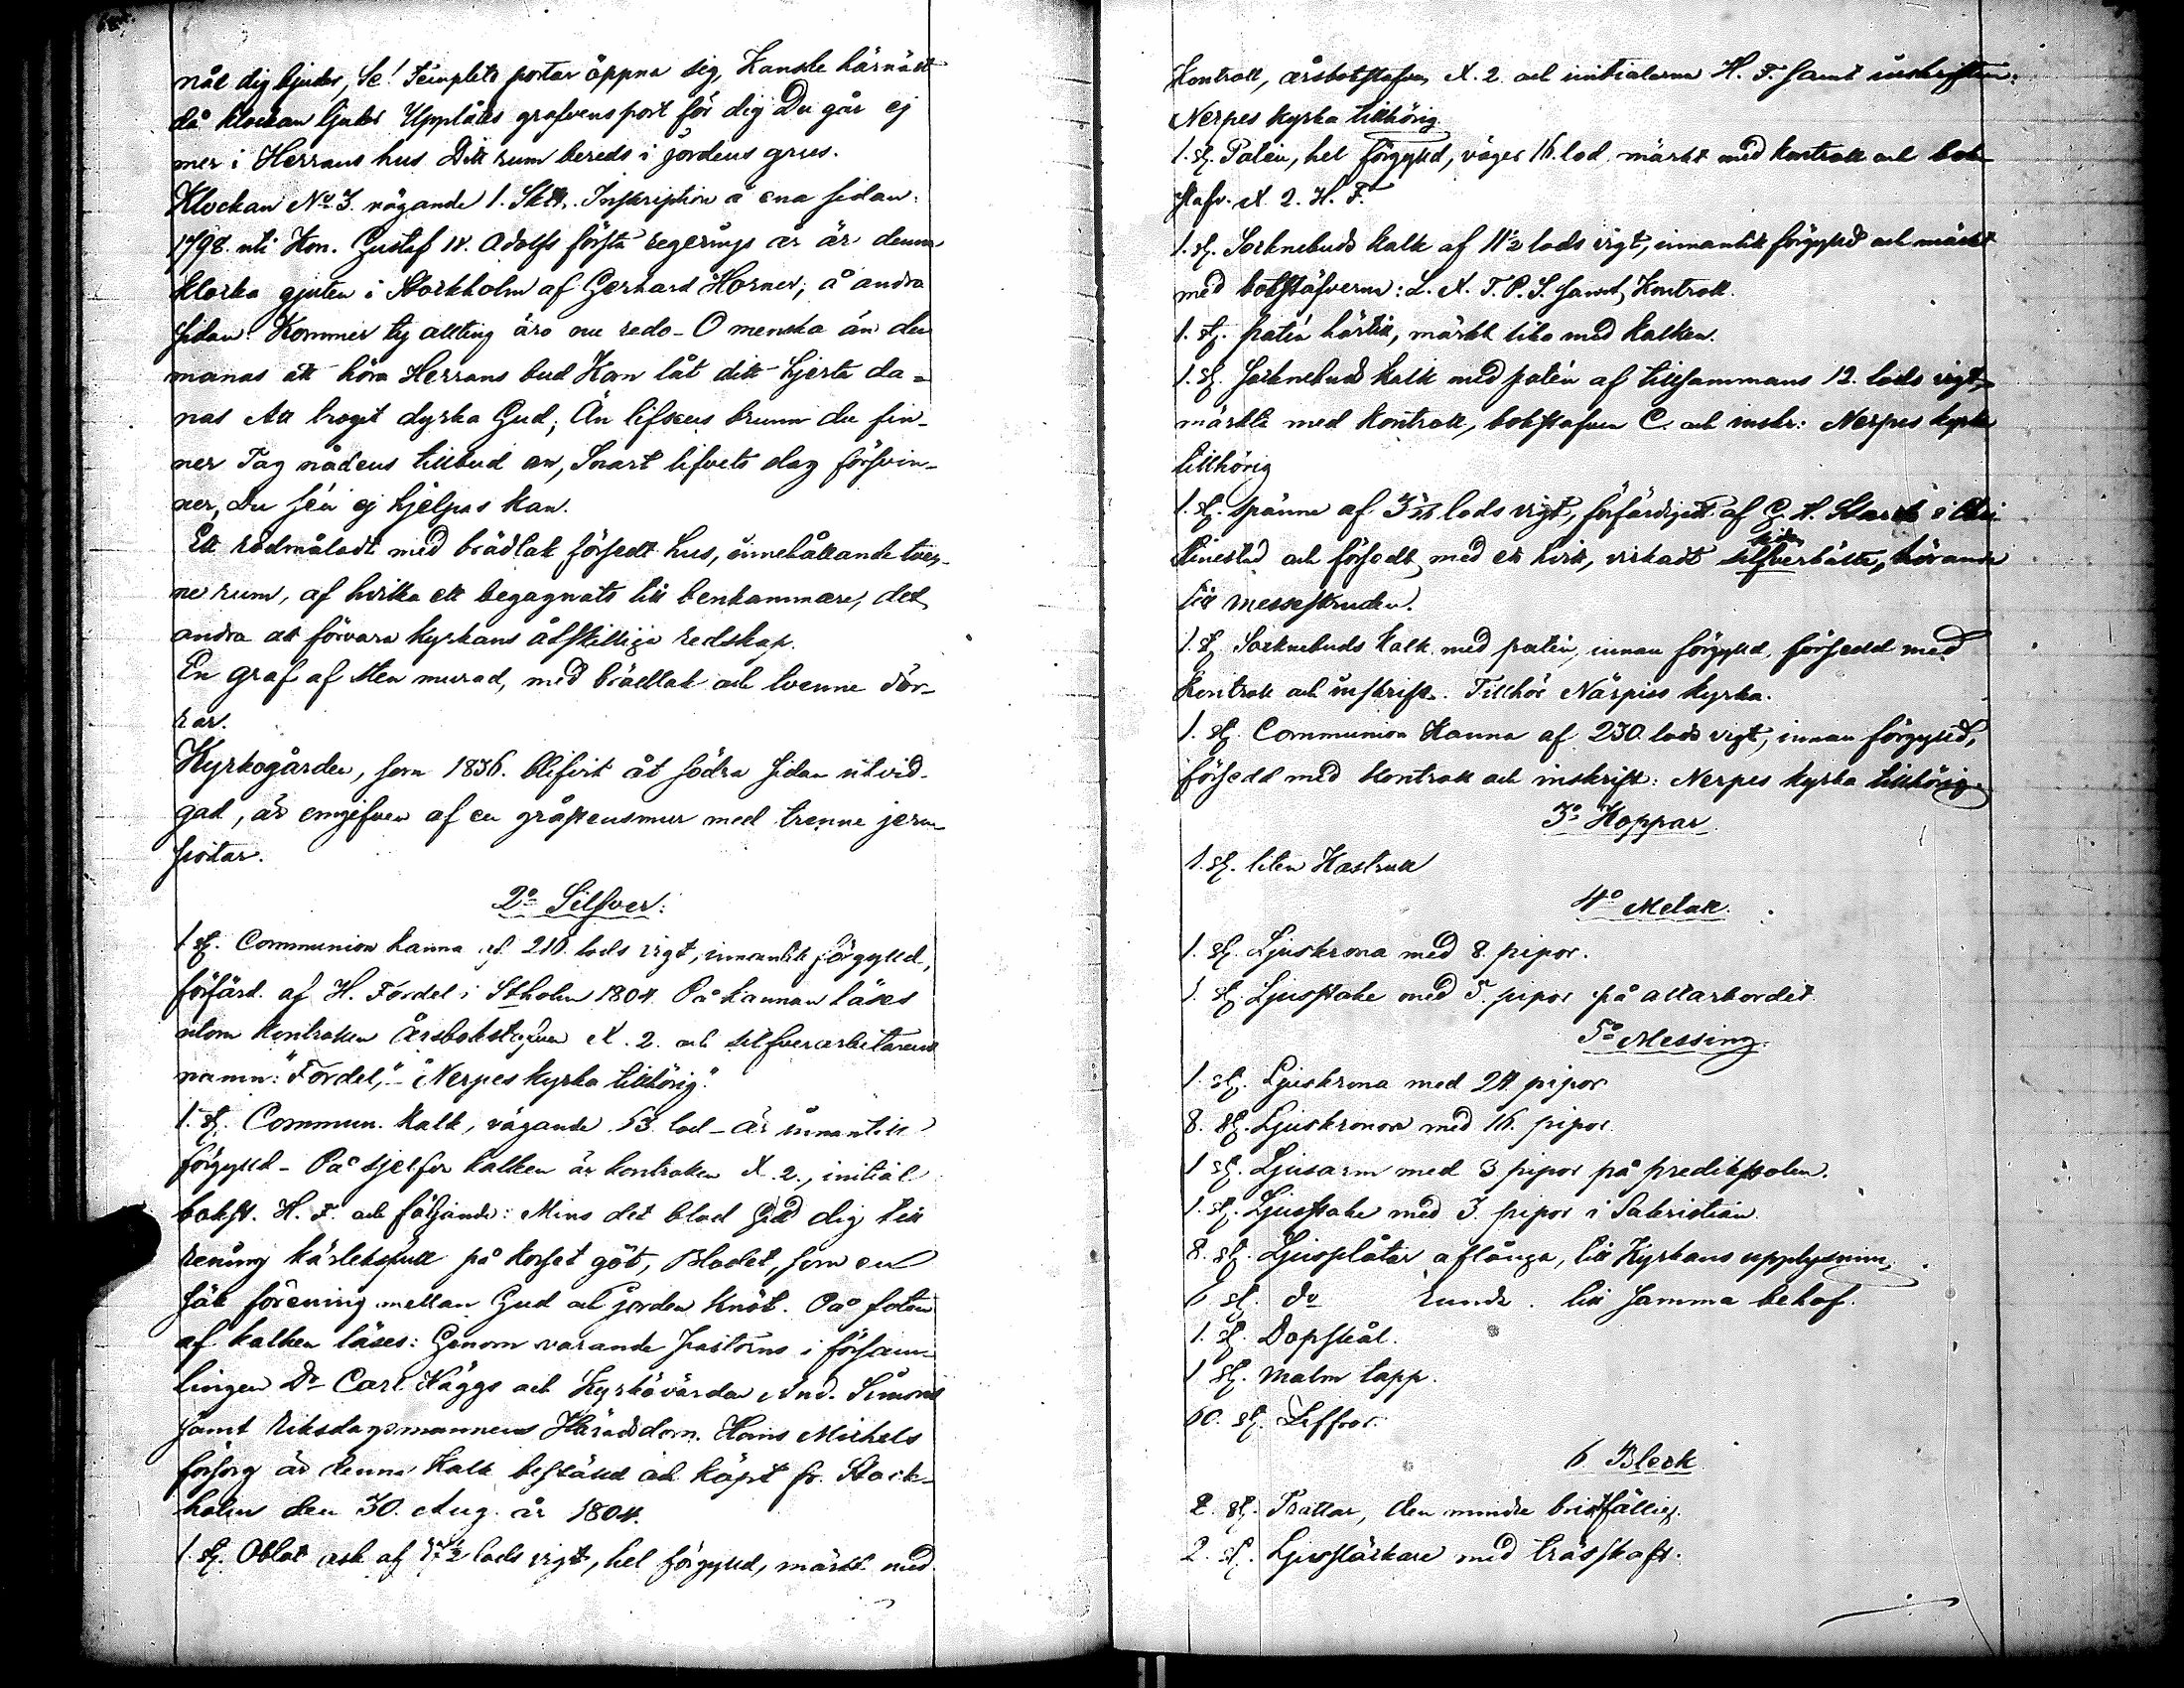 nåt dig bjuder, Se! Templets portar öppna sig, Kanske härnäst
då klockan ljuder Upplåtes grafvens port för dig Du går ej
mer i Herrans hus Ditt rum bereds i jordens grus.
Klockan No 3. vägande 1. Sk℔. Inskription å ena sidan:
1798. uti Kon. Gustaf IV. Adolfs första regerings år är denna
klocka gjuten i Stockholm af Gerhard Horner; å andra
sidan: Kommer ty allting äro nu redo - O menska än du
manas att höra Herrans bud Kan låt ditt hjerta da-
nas Att troget dyrka Gud; Än lifsens brunn du fin-
ner Tag nådens tillbud an, Snart lifvets dag försvin-
ner, Du sen ej hjelpas kan.
Ett rödmåladt med brädtak försedt hus, innehållande tven-
ne rum, af hvilka ett begagnats till benkammare, det
andra att förvara kyrkans åtskilliga redskap.
En graf af sten murad, med brädtak och tvenne dör-
rar.
Kyrkogården, som 1836. blifvit åt södra sidan utvid-
gad, är omgifven af en gråstensmur med trenne jern
portar.
2o Silfver:
1 st. Communion kanna af 210. lods vigt, innantill förgylld,
förfärd. af H. Fordel i Stholm 1804. På kannan läses
utom kontrollen Årsbokstafven N. 2. och silfverarbetarens
namn: "Fordel," - "Nerpes kyrka tillhörig".
1. st. Commun. kalk, vägande 53 lod - är innantill
förgylld - På sjelfva kalken är kontrollen N. 2., initial
bokst. H. F. och följande: Mins det blod Gud dig till
rening kärleksfull på korset göt, Blodet, som en
säll förening mellan Gud och jorden knöt. På foten
af kalken läses: Genom varande pastorns i försam-
lingen Dr Carl Häggs och Kyrkovärden And. Simons
samt Riksdagsmannens Häradsdom. Hans Michels
försorg är denna Kalk beställd och köpt fr. Stock-
holm den 30. Aug. år 1804.
1. st. Oblat ask af 17½ lods vigt, hel förgylld, märkt med
Kontroll, årsbokstafven N. 2. och initialerna H. F. samt inskriften:
Nerpes kyrka tillhörig.
1. st. Patén, hel förgylld, väger 16. lod, märkt med kontroll och bok-
stafv. N. 2. H. F.
1. st. Socknebuds kalk af 11½ lods vigt, innantill förgylld och märkt
med bokstäfverna: L. N. T. P. S. samt Kontroll.
1. st. patén härtill, märkt lika med kalken.
1. st. Socknebuds kalk med patén af tillsammans 12. lods vigt,
märkta med kontroll, bokstafven C. och inskr: Nerpes kyrka
tillhörig
1. st. spänne af lods vigt, förfärdigadt af i Chri
stinestad och försedt med ett hvitt, virkadt siden
silfverbälte, hörande
till messeskruden.
1. st. Socknebuds kalk med patén, innan förgylld, försedd med
kontroll och inskrift. Tillhör Närpiss kyrka.
1. st. Communion Kanna af 230. lods vigt, innan förgylld,
försedd med kontroll och inskrift: Nerpes kyrka tillhörig.
3o Koppar.
1. st. liten Kastrull
4o Metall.
1. st. Ljuskrona med 8. pipor.
1. st. Ljusstake med 5. pipor på altarbordet.
5o Messing.
1. st. Ljuskrona med 24. pipor
8. st. Ljuskronor med 16. pipor.
1 st. Ljusarm med 3 pipor på predikstolen.
1. st. Ljusstake med 3. pipor i Sakristian.
8. st. Ljusplåtar aflånga, till Kyrkans upplysning.
6 st. do runda. till samma behof.
1. st. Dopskål.
1 st. Malm tapp.
60. st. Siffror.
6. Bleck
2. st. Trattar, den mindre bristfällig.
2. st. Ljussläckare med träskaft.